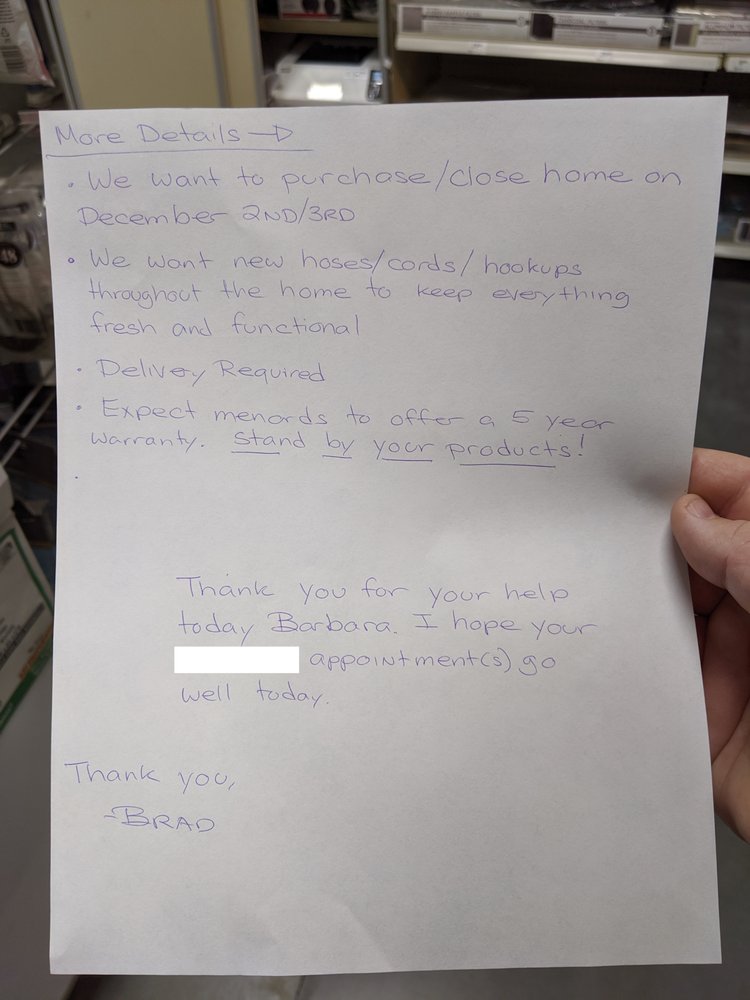 More Details →
• We want to purchase/close home on
December 2ND/3RD
• We want new hoses/cords/hookups
throughout the home to keep everything
fresh and functional
• Delivery Required
• Expect menards to offer a 5 year
warranty. Stand by your products!
•
Thank you for your help
today Barbara. I hope your
appointment(s) go
well today.
Thank you,
-BRAD